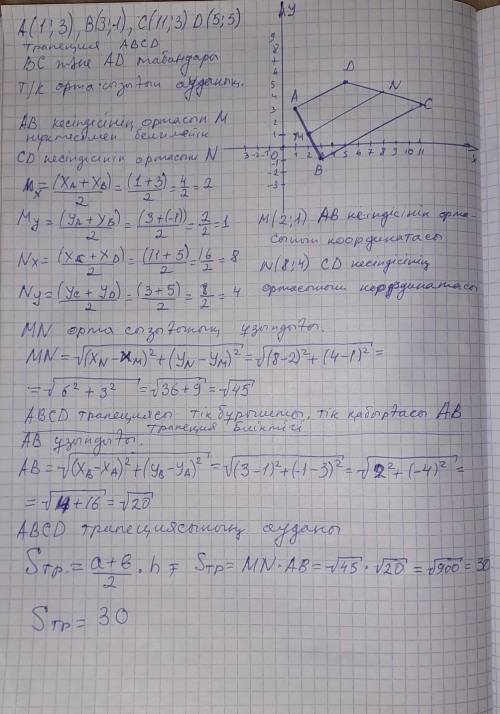 A(1;3), B(3;-1), C(11;3) D(5;5)
Трапеция ABCD
BC және AD табандары
Т/к орта сызығын ауданын.
AB кесіндісінің ортасын M
нүктесімен белгілейік
CD кесіндісінің ортасын N
Mx = (xA + xB)/2 = (1+3)/2 = 4/2 = 2
My = (yA + yB)/2 = (3+(-1))/2 = 2/2 = 1
Nx = (xC + xD)/2 = (11+5)/2 = 16/2 = 8
Ny = (yC + yD)/2 = (3+5)/2 = 8/2 = 4
M(2;1) AB кесіндісінің орта-
сының координатасы
N(8;4) CD кесіндісінің
ортасының координатасы
MN орта сызығының ұзындығы.
MN = √(xN - xM)² + (yN - yM)² = √(8-2)² + (4-1)² =
= √6² + 3² = √36+9 = √45
ABCD трапециясы тік бұрышты, тік қабырғасы AB
трапеция биіктігі
AB ұзындығы.
AB = √(xB - xA)² + (yB - yA)² = √(3-1)² + (-1-3)² = √2² + (-4)² =
= √4+16 = √20
ABCD трапециясының ауданы
Sтр. = a+b/2 · h = Sтр = MN · AB = √45 · √20 = √900 = 30
Sтр = 30
y
9
8
7
6
5
4
3
2
1
-1
-2
-3
-3 -2 -1 0 1 2 3 4 5 6 7 8 9 10 11
x
A
D
N
C
M
B